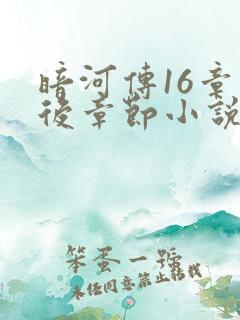 暗河傳16章
後章節小說
笨蛋一號
未經同意禁止轉載